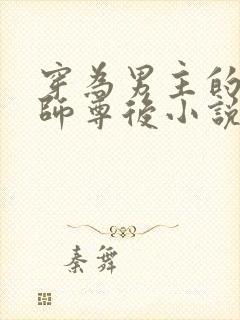 穿為男主的
師尊後小說
秦舞